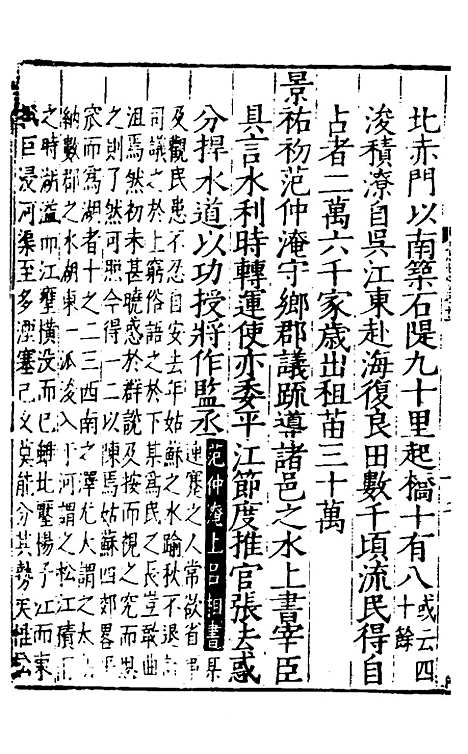 北赤門以南築石隄九十里起橋十有八或云四十餘
浚積潦自吳江東赴海復良田數千頃流民得自
占者二萬六千家歲出租苗三十萬
景祐初范仲淹守鄉郡議疏導諸邑之水上書宰臣
具言水利時轉運使亦委平江節度推官張去惑
分捍水道以功授將作監丞范仲淹上呂相書某
連蹇之人常欲省事
及觀民患不忍自安去年姑蘇之水踰秋不退計
司議之於上窮俗語之於下某爲民之長豈敢曲
沮焉然初未甚曉惑於群說及按而視之究而與
之則了然可照今得一二以陳焉姑蘇四郊畧平
窊而爲湖者十之二三西南之澤尤大謂之太湖
納數郡之水湖東一派浚入于河謂之松江積雨
之時湖溢而江壅橫没而已雖北壓揚子江而東
巨浸河渠至多湮塞已久莫能分其勢矣惟松